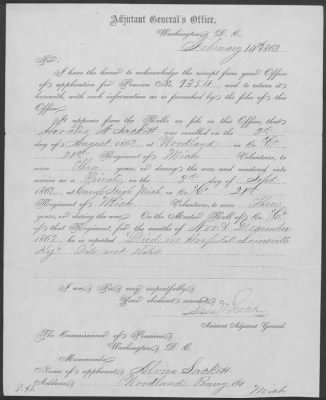 Adjutant General's Office,
Washington, D. C.
February 14th 1863
Sir:
I have the honor to acknowledge the receipt from your Office
of application for Pension No. 9354, and to return it
herewith, with such information as is furnished by the files of this
Office.
It appears from the Rolls on file in this Office, that
Sackett was enrolled on the 2d
day of August 1862, at Woodland in Co. "C"
21st Regiment of Mich Volunteers, to serve
Three years, or during the war, and mustered into
service as a Private on the day of Sept
1862, at Mich, in Co. "C" 21st
Regiment of Mich Volunteers, to serve Three
years, or during the war. On the Muster Roll of Co. "C"
of that Regiment, for the months of Nov & December
1862, he is reported Died in Hospital Louisville
Ky. Date not stated
I am Sir, very respectfully,
Your obedient servant,
Assistant Adjutant General.
The Commissioner of Pensions,
Washington, D. C.
Memoranda:
Name of applicant, Sackett
Address, Woodland Barry Co
Mich